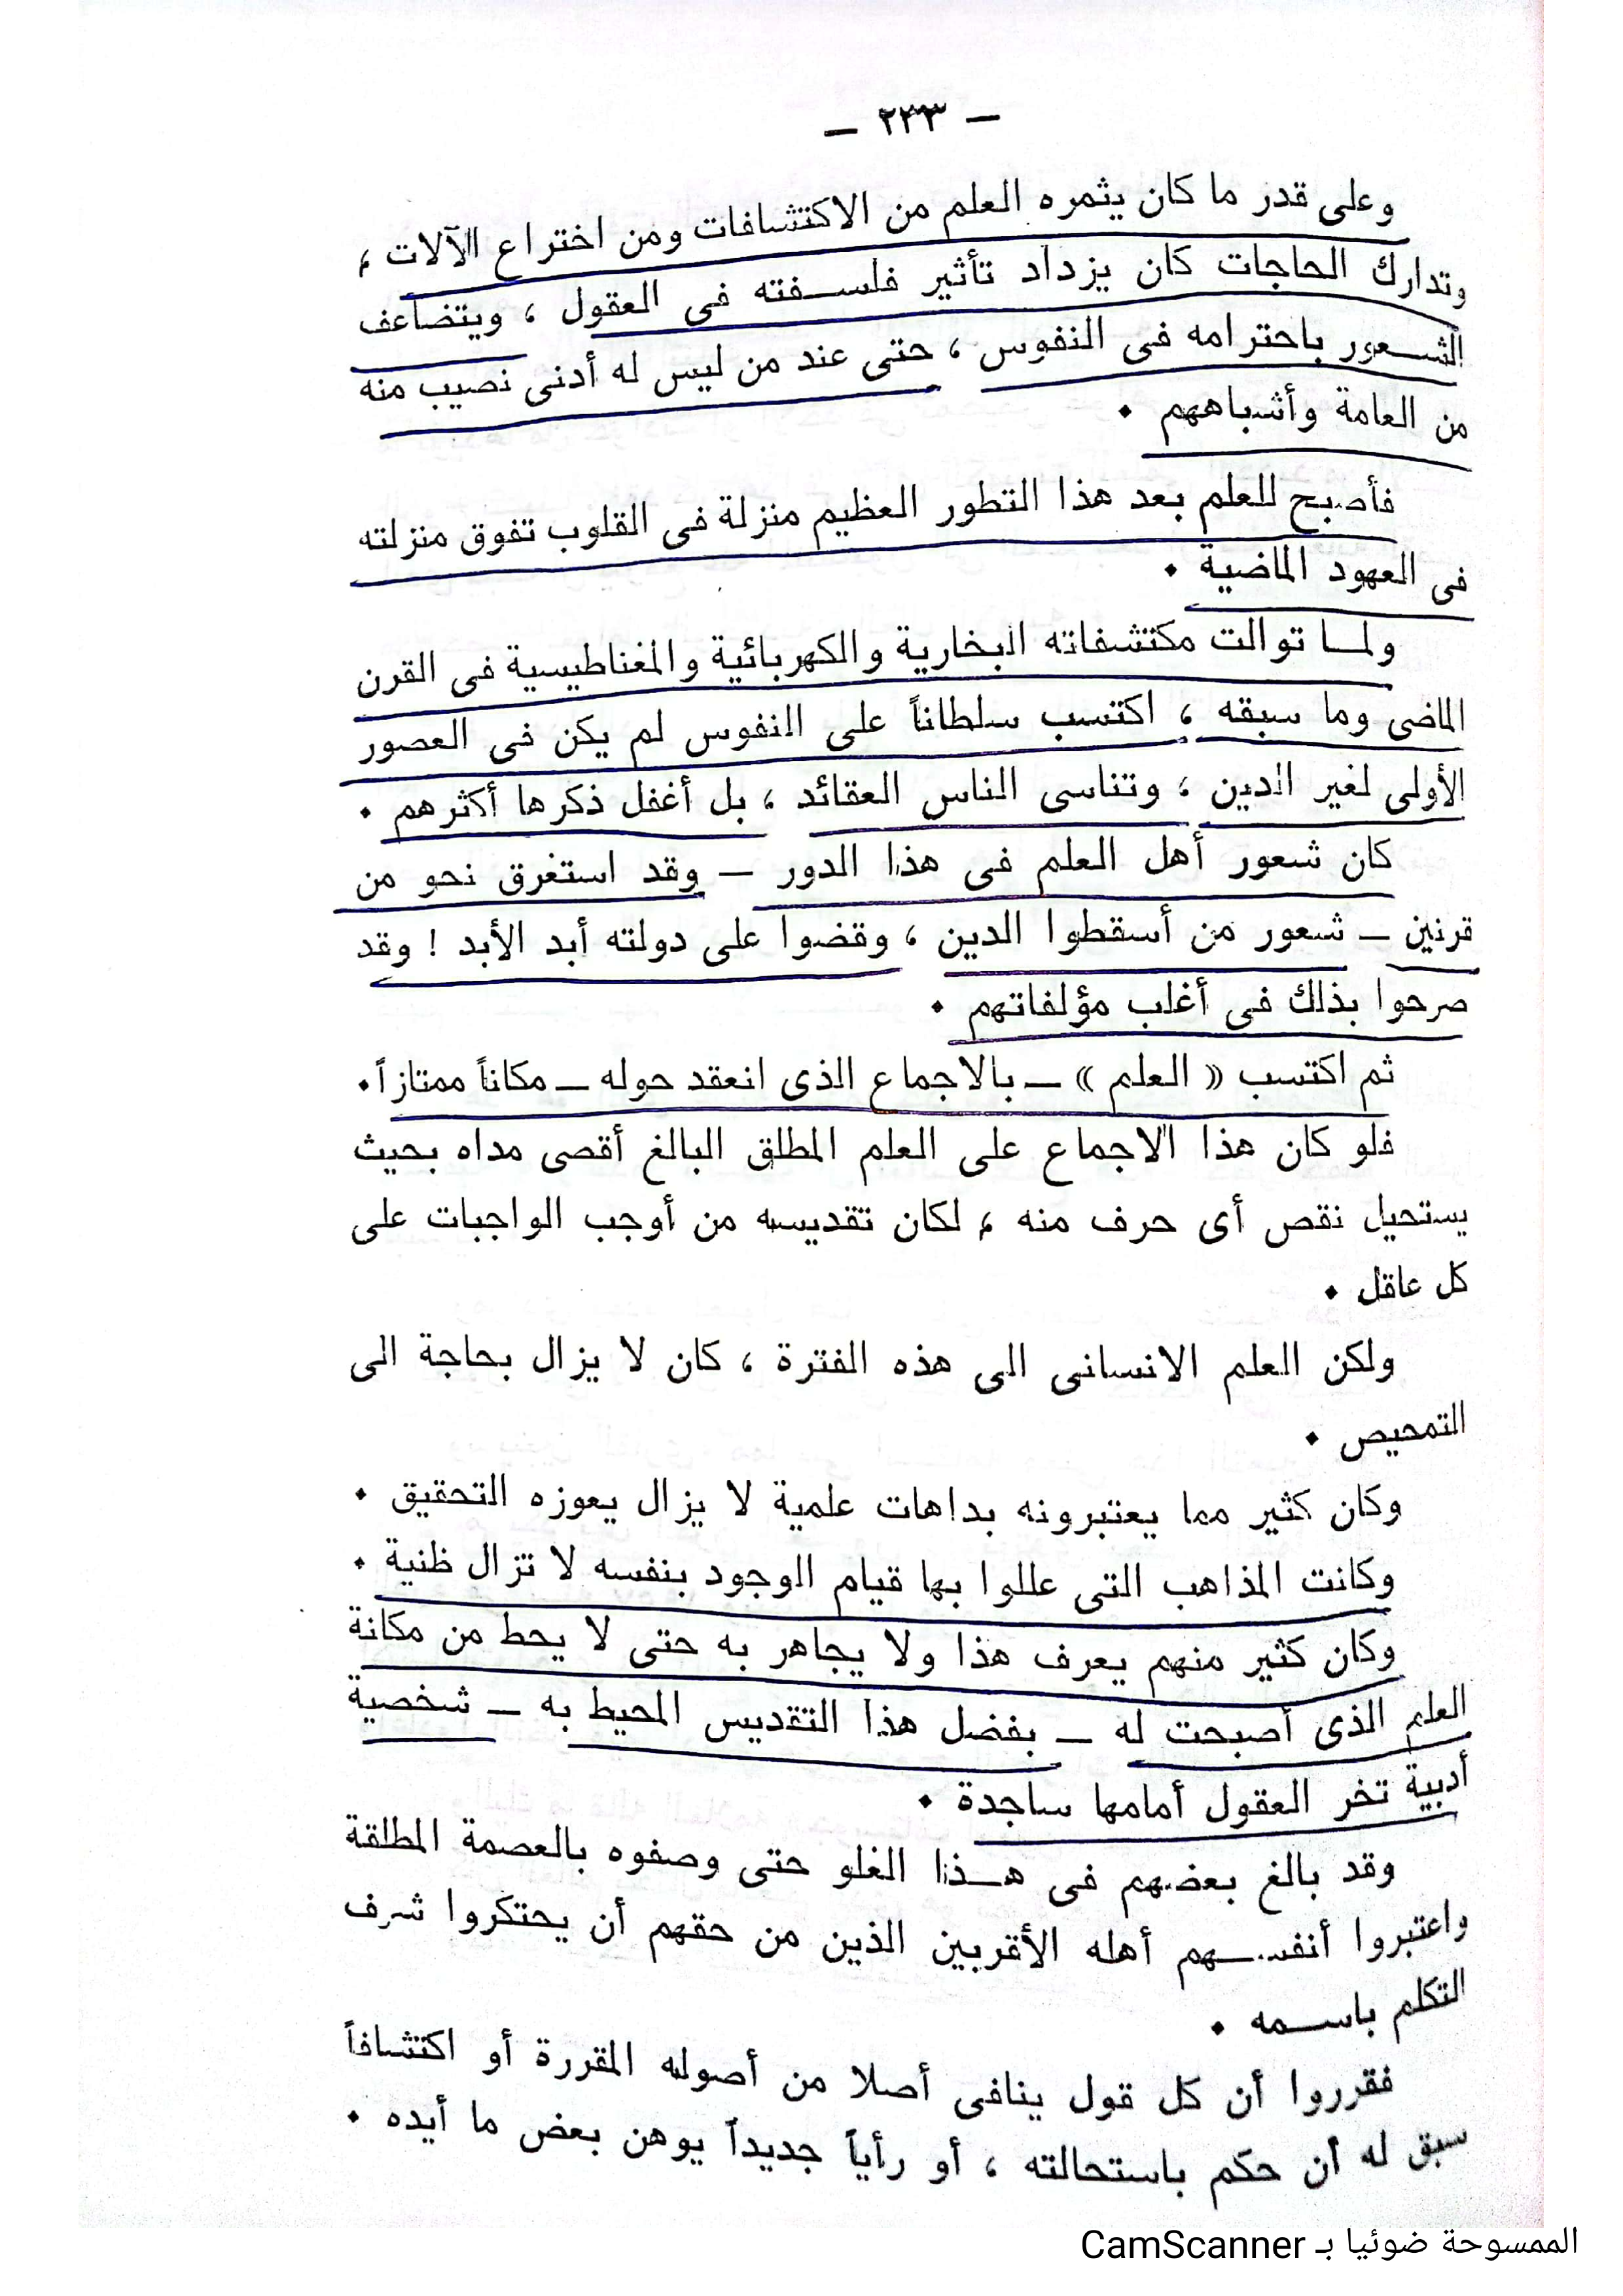 — ٢٣٣ —
وعلى قدر ما كان يثمره العلم من الاكتشافات ومن اختراع الآلات ،
وتدارك الحاجات كان يزداد تأثير فلسفته فى العقول ، ويتضاعف
الشعور باحترامه فى النفوس ، حتى عند من ليس له أدنى نصيب منه
من العامة وأشباههم .
فأصبح للعلم بعد هذا التطور العظيم منزلة فى القلوب تفوق منزلته
فى العهود الماضية .
ولما توالت مكتشفاته البخارية والكهربائية والمغناطيسية فى القرن
الماضى وما سبقه ، اكتسب سلطاناً على النفوس لم يكن فى العصور
الأولى لغير الدين ، وتناسى الناس العقائد ، بل أغفل ذكرها أكثرهم .
كان شعور أهل العلم فى هذا الدور — وقد استغرق نحو من
قرنين — شعور من أسقطوا الدين ، وقضوا على دولته أبد الأبد ! وقد
صرحوا بذلك فى أغلب مؤلفاتهم .
ثم اكتسب « العلم » — بالاجماع الذى انعقد حوله — مكاناً ممتازاً .
فلو كان هذا الاجماع على العلم المطلق البالغ أقصى مداه بحيث
يستحيل نقص أى حرف منه ، لكان تقديسه من أوجب الواجبات على
كل عاقل .
ولكن العلم الانسانى الى هذه الفترة ، كان لا يزال بحاجة الى
التمحيص .
وكان كثير مما يعتبرونه بداهات علمية لا يزال يعوزه التحقيق .
وكانت المذاهب التى عللوا بها قيام الوجود بنفسه لا تزال ظنية .
وكان كثير منهم يعرف هذا ولا يجاهر به حتى لا يحط من مكانة
العلم الذى أصبحت له — بفضل هذا التقديس المحيط به — شخصية
أدبية تخر العقول أمامها ساجدة .
وقد بالغ بعضهم فى هذا الغلو حتى وصفوه بالعصمة المطلقة
واعتبروا أنفسهم أهله الأقربين الذين من حقهم أن يحتكروا شرف
التكلم باسمه .
فقرروا أن كل قول ينافى أصلا من أصوله المقررة أو اكتشافاً
سبق له أن حكم باستحالته ، أو رأياً جديداً يوهن بعض ما أيده .
الممسوحة ضوئيا بـ CamScanner